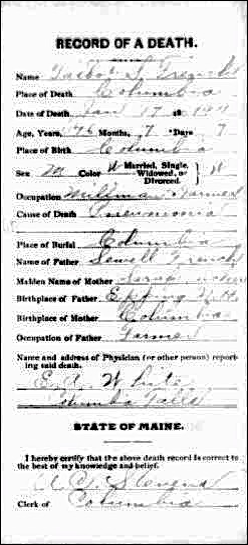 RECORD OF A DEATH.
Name Talbot S French
Place of Death Columbia
Date of Death Jan 17 18
Age, Years, 76 Months, 7 Days 7
Place of Birth Columbia
Sex M Color W Married, Single, Widowed, or Divorced. W
Occupation Millman Farmer
Cause of Death Pneumonia
Place of Burial Columbia
Name of Father Sewell French
Maiden Name of Mother
Birthplace of Father Epping N H
Birthplace of Mother Columbia
Occupation of Father Farmer
Name and address of Physician (or other person) reporting said death.
E. A. White
Columbia Falls
STATE OF MAINE.
I hereby certify that the above death record is correct to the best of my knowledge and belief.
Clerk of Columbia